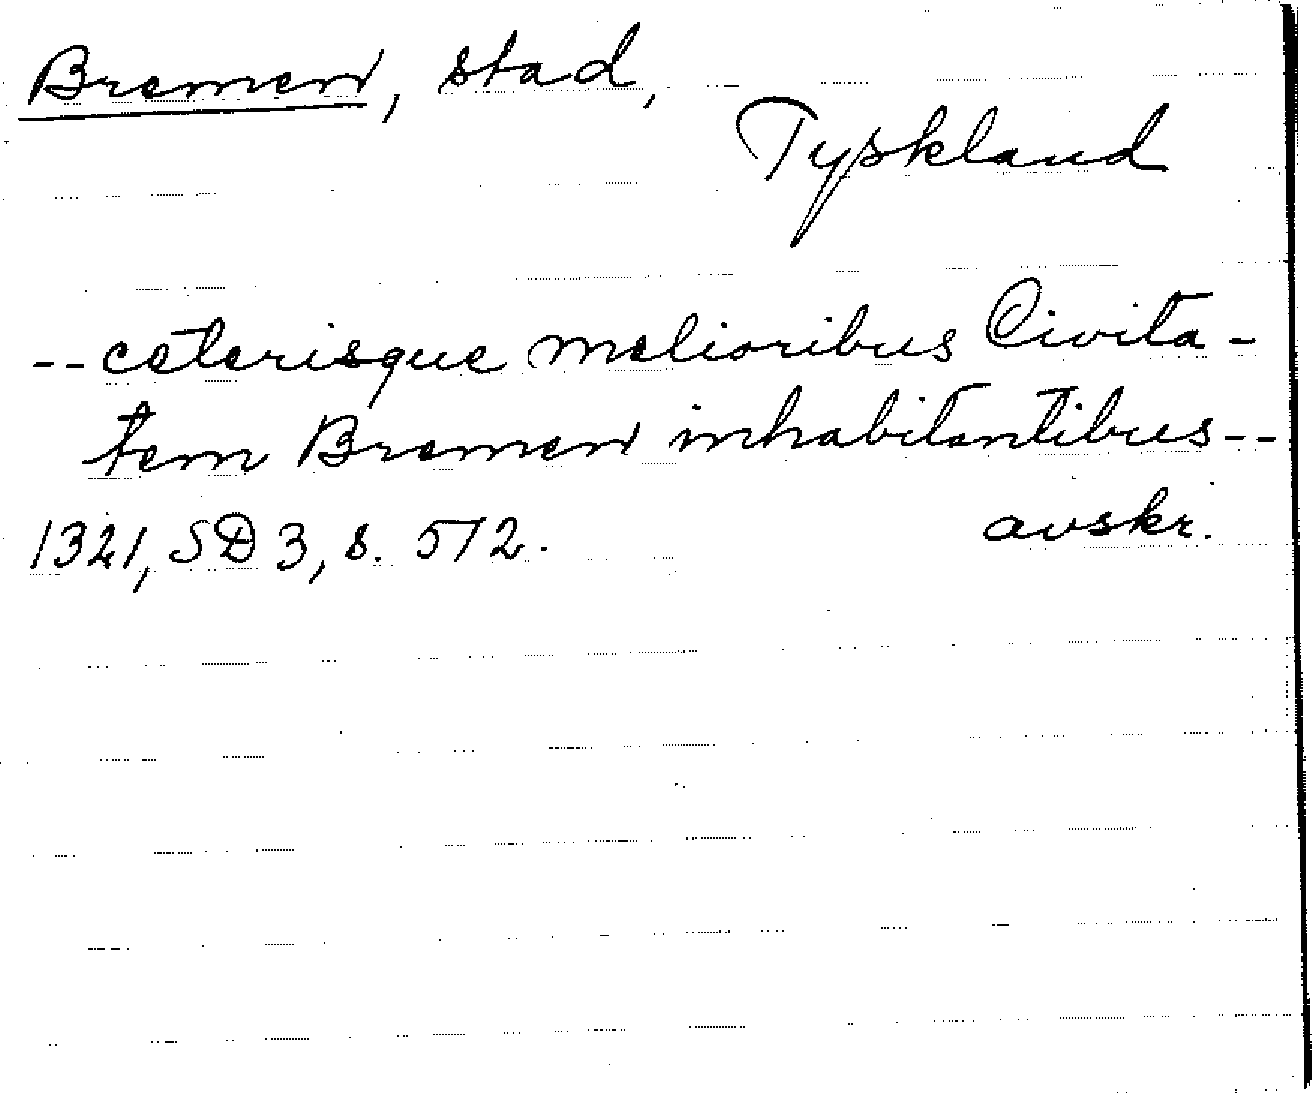 Bremen, stad,
Tyskland
-- ceterisque melioribus Civita-
tem Bremen inhabitantibus --
1321, SD 3, s. 512.
avskr.